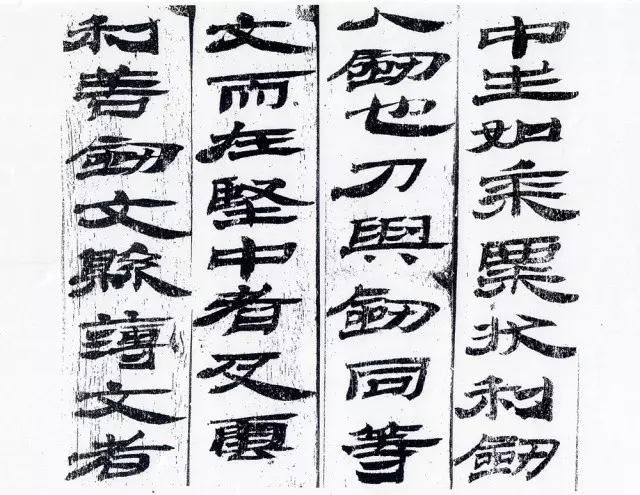 中生如黍粟狀利劍
人劍也刀與劍同等
文而在堅中者及雲
利善劍文縣薄文者